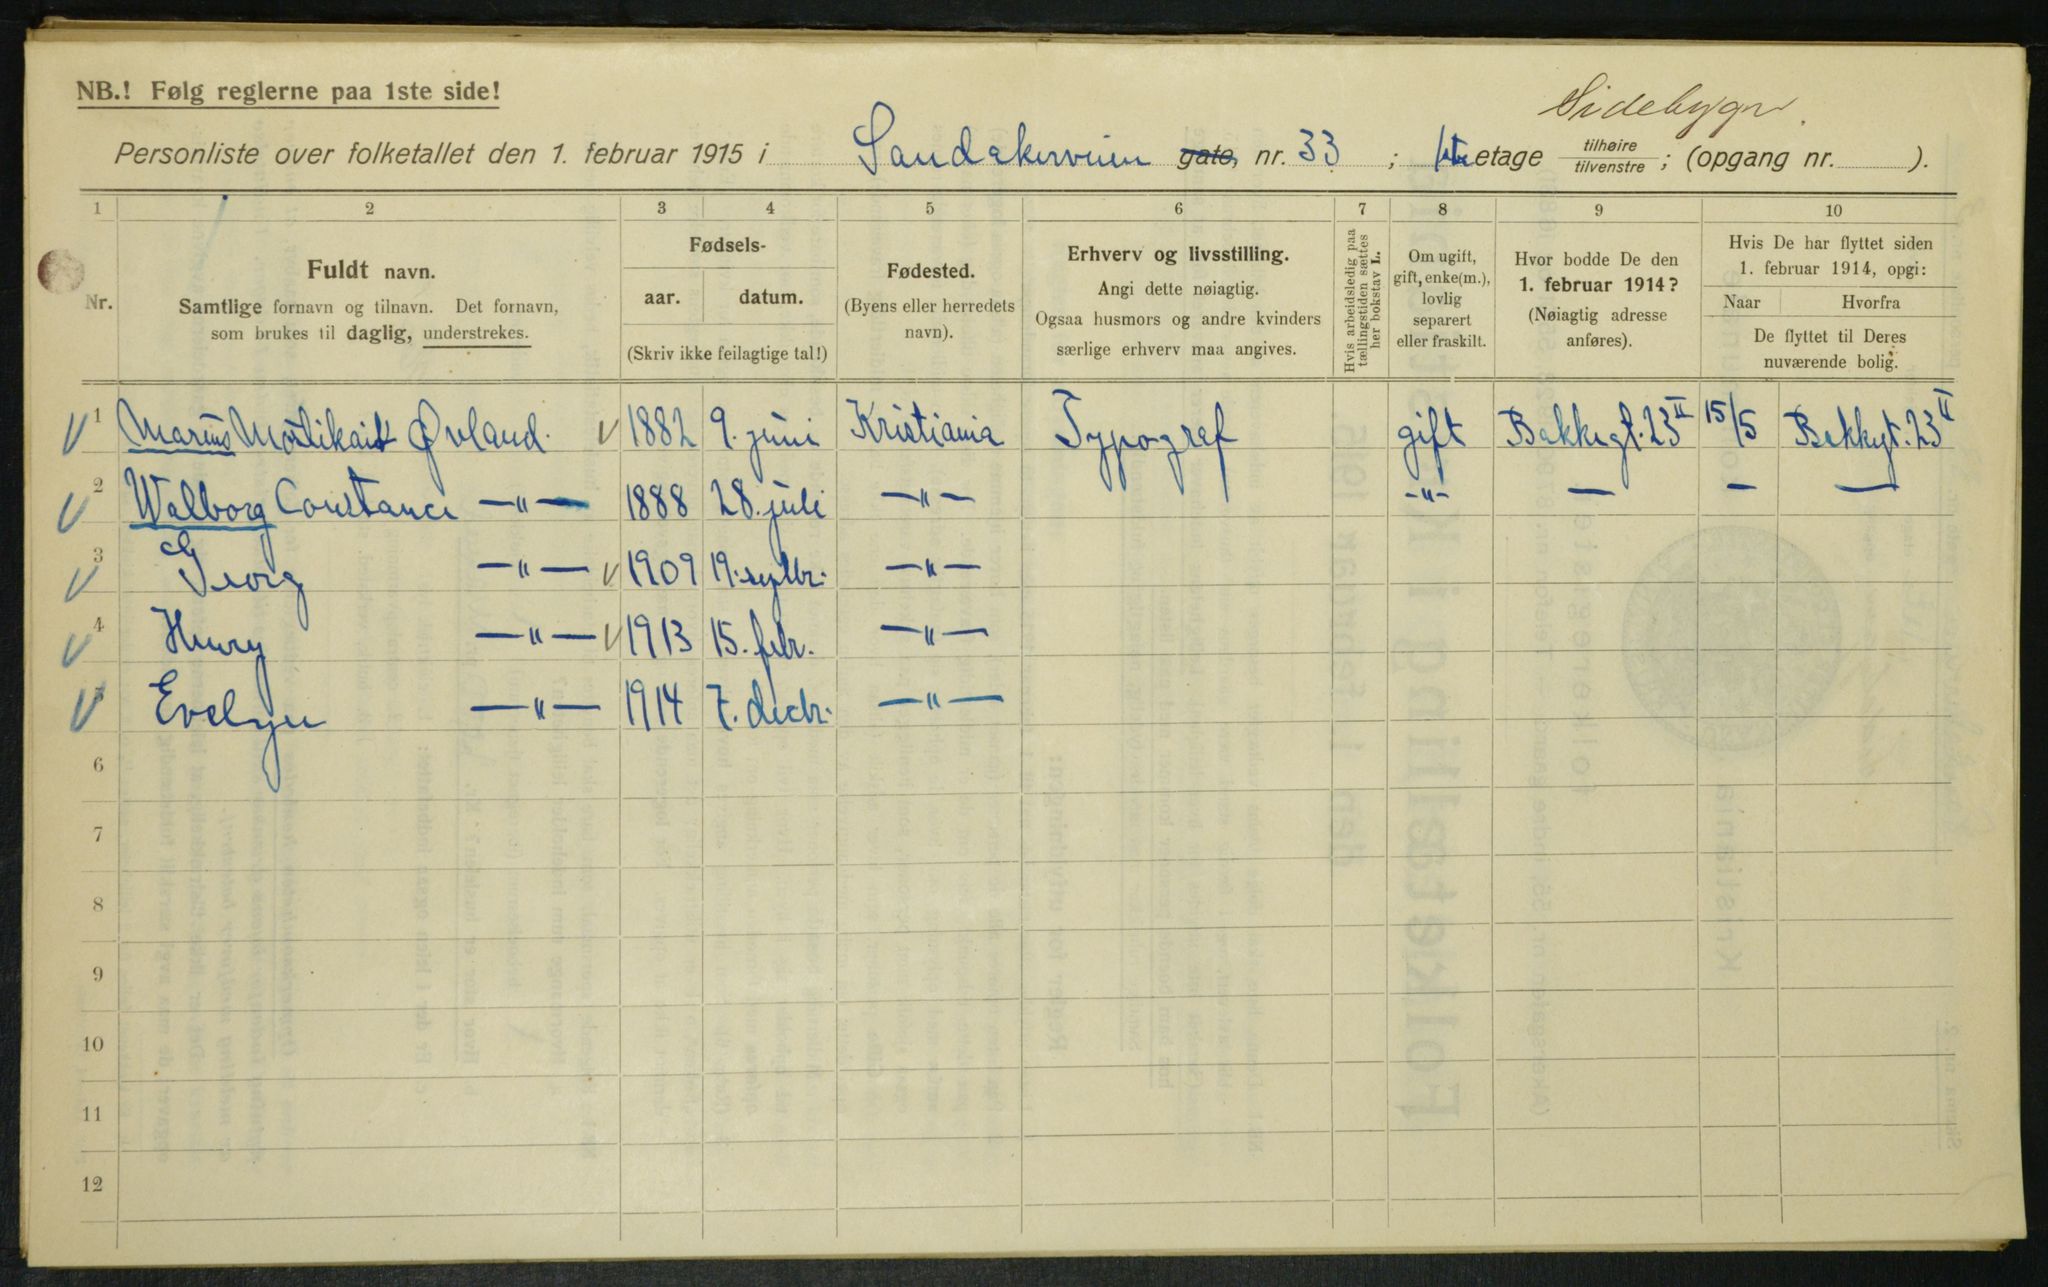 NB.! Følg reglerne paa 1ste side!
Sidebygn.
Personliste over folketallet den 1. februar 1915 i Sandakerveien gate, nr. 33 ; 1ste etage tilhøire/tilvenstre ; (opgang nr. ).
1 2 3 4 5 6 7 8 9 10
Nr.
Fuldt navn.
Samtlige fornavn og tilnavn. Det fornavn,
som brukes til daglig, understrekes.
Fødsels-
aar. datum.
(Skriv ikke feilagtige tal!)
Fødested.
(Byens eller herredets
navn).
Erhverv og livsstilling.
Angi dette nøiagtig.
Ogsaa husmors og andre kvinders
særlige erhverv maa angives.
Hvis arbeidsledig paa
tællingstiden sættes
her bokstav L.
Om ugift,
gift, enke(m.),
lovlig
separert
eller fraskilt.
Hvor bodde De den
1. februar 1914?
(Nøiagtig adresse
anføres).
Hvis De har flyttet siden
1. februar 1914, opgi:
Naar Hvorfra
De flyttet til Deres
nuværende bolig.
1 Marius Ørland. 1882 9. juni Kristiania Typograf gift Bakkegt. 23 II 15/5 Bakkegt. 23 II
2 Walborg Constance —"— 1888 28. juli —"— -"- — — —
3 Georg —"— 1909 19. septbr. —"—
4 Henry —"— 1913 15. febr. —"—
5 Evelyn —"— 1914 7. decbr. —"—
6
7
8
9
10
11
12